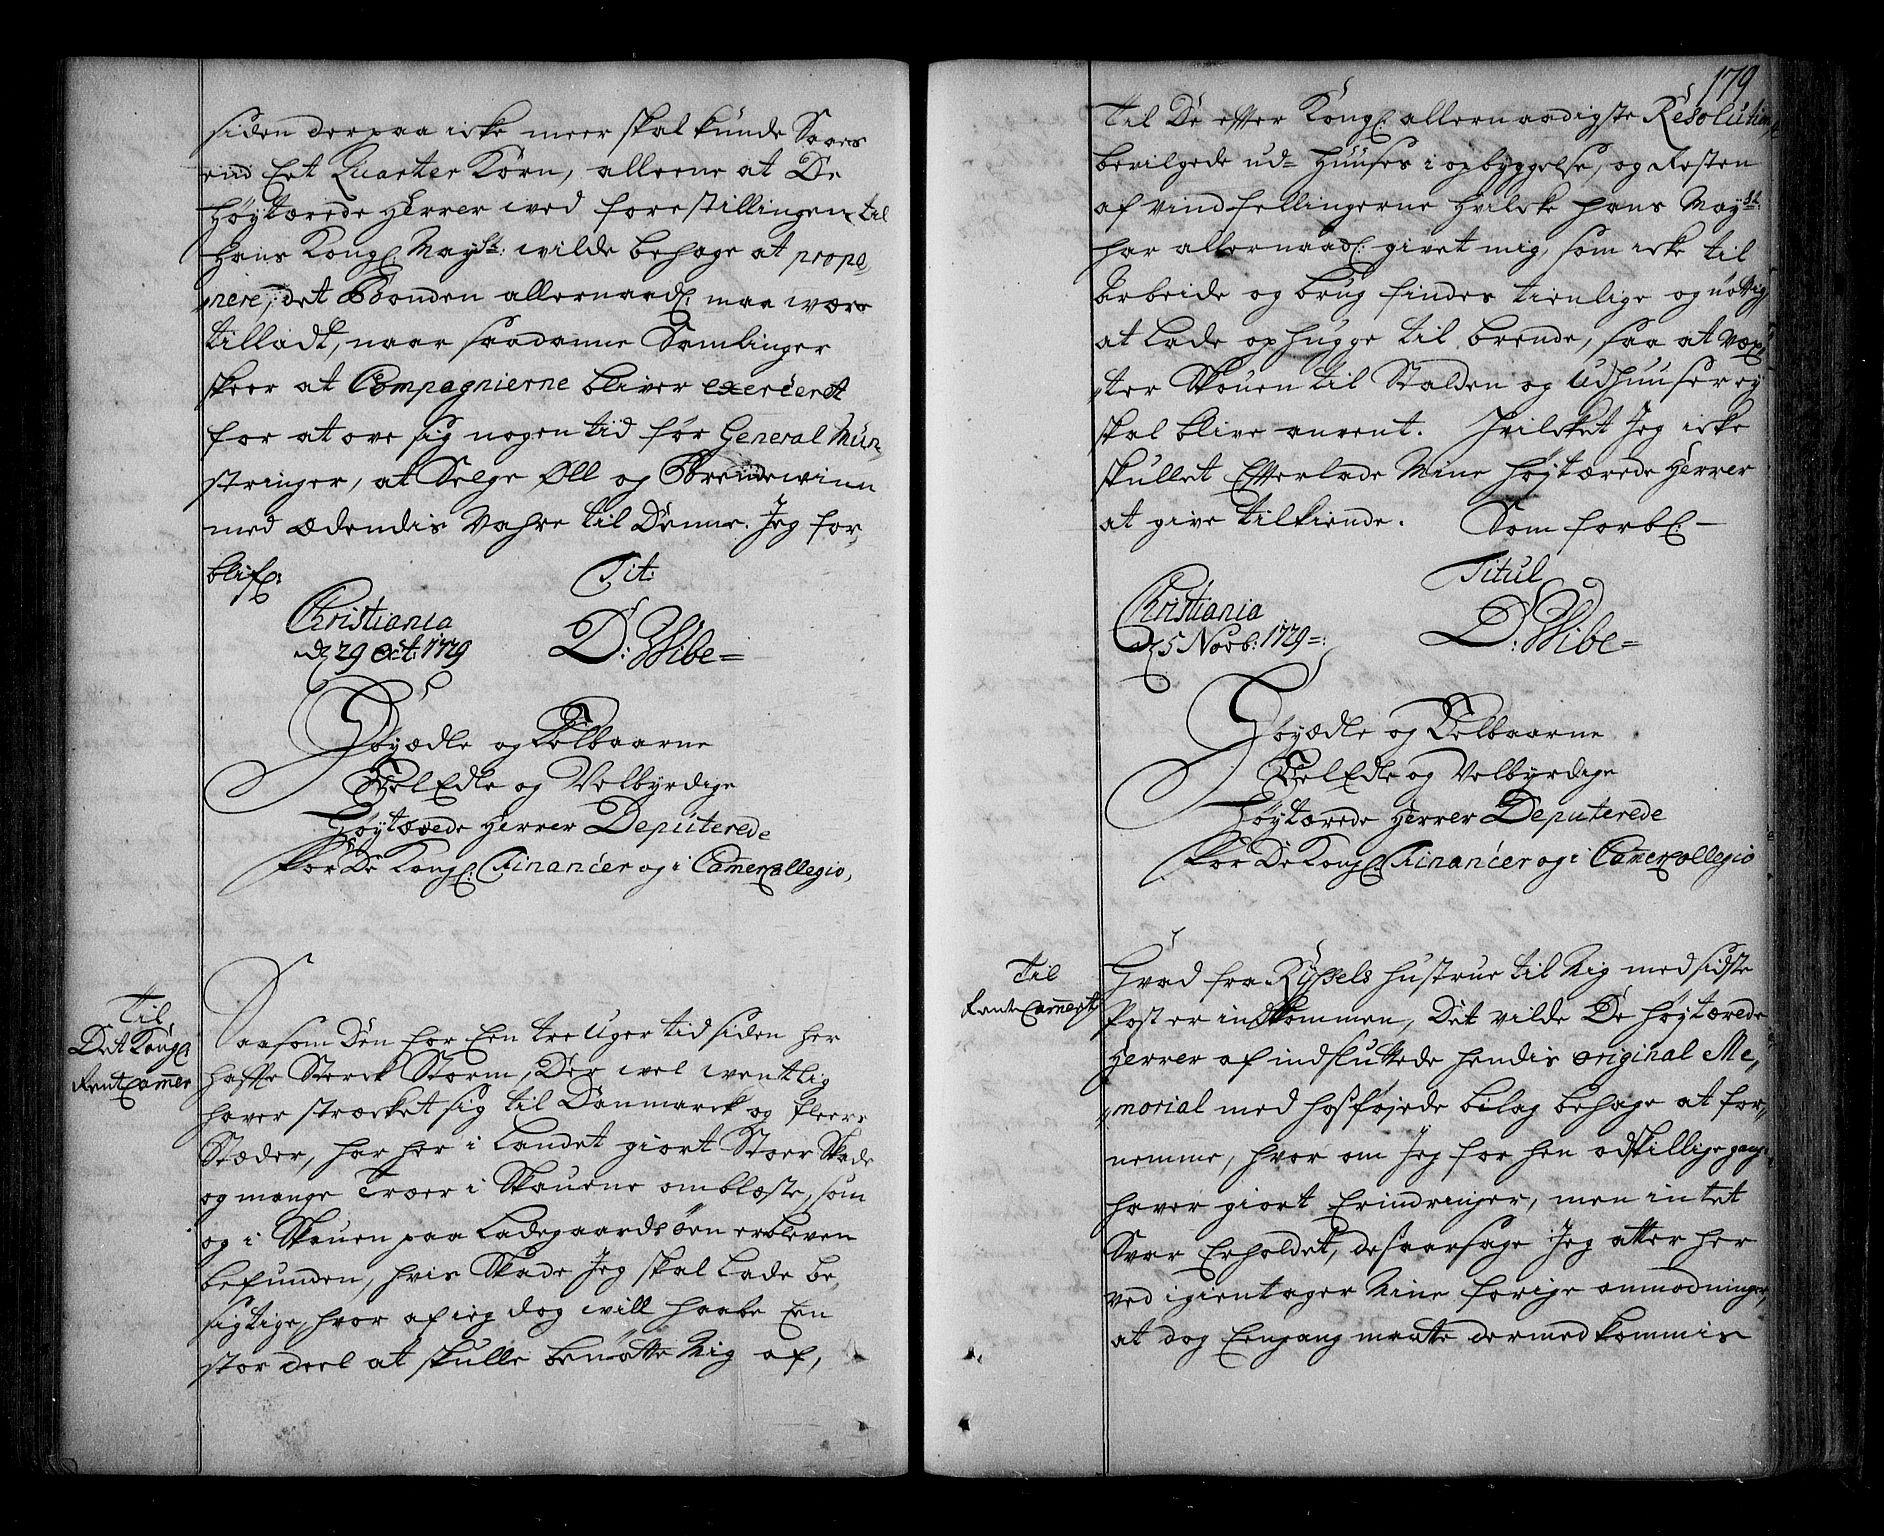 siden derpaa icke meer skal kunde Saaes
end Eet Quarter Korn, alleene at De
Høytærede Herrer wed forestillingen til
Hans Kongl. Mayst: wilde behage at propo,
,nere, det Bonden allernaadl. maa være
tilladt, naar saadanne Samlinger
skeer at Compagnierne bliver exerceret
for at öve sig nogen tid før General Mün,
stringer, at Selge Øll og Brendewiin
med ædendis Vahre til Denne. Jeg for,
blifl:
Tit:
Christiania
d 29 Oct: 1729
D: Wibe=
Høyædle og Velbaarne
Vel Edle og Velbyrdige
Høytærede Herrer Deputerede
for De Kongl: Financer og i Camercollegio,
Til
Det Kongl:
RentCamer
Saasom Den for Een tre Uger tid siden her
hafte Sterck Storm, Der wel wentlig
haver strecket sig til Danmarck og fleere
Stæder, har her i Landet giort Stoer Skade
og mange Træer i Skauene omblæste, som
og i Skauen paa Ladegaardsöen erbleven
befunden, hvis Skade Jeg skal Lade be,
sigtige, hvor af jeg dog will haabe Een
stor deel at skulle benötte Mig af,
179
Til De efter Kongl. allernaadigste Resolution
bevilgede ud= Huuses i opbyggelse, og Resten
af vindfellingerne Hvilcke hans Mayst:
har allernaadl: givet mig, som icke til
Arbeide og brug findes tienlige og nöttig
at Lade ophugge til brende, saa at Væx,
,ter Skouen til Stalden og Udhuuser ey
skal blive anvent. Hvilcket Jeg icke
skullet Efterlade Mine Høytærede Herrer
at give tilkiende. Som forbl:
Titul
Christiania
d 5 Novb: 1729=:
D: Wibe=
Høyædle og Velbaarne
Vel Edle og Velbyrdige
Høytærede Herrer Deputerede
for De Kongl: Financer og i Camercollegio
Til
Rente Camert
Hvad fra Ryssels Hustrue til Mig med sidste
Post er indkommen, Det vilde De Høytærede
Herrer af indsluttede hendis original Me,
,morial med hosføjede bilag behage at for,,
nemme, hvor om Jeg for hen adskillige gange
haver giort Erindringer, men intet
Svar Erholdet, desaarsage Jeg atter her
ved igientager Mine forige anmodninger,
at dog Eengang maatte dermed kommis